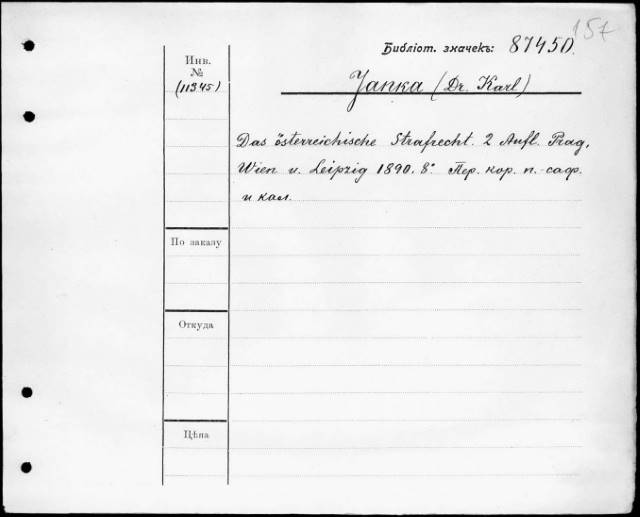 157
Библіот. значекъ: 87450.
Инв.
№
(11345)
Janka (Dr. Karl)
Das österreichische Strafrecht. 2 Aufl. Prag,
Wien u. Leipzig 1890. 8°. Пер. кор. п.-саф.
и кал.
По заказу
Откуда
Цѣна